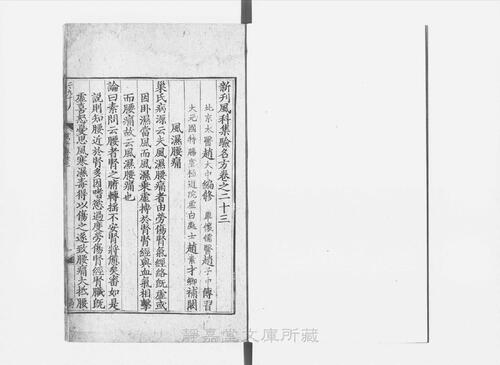 新刋風科集驗名方卷之二十三
北京太醫趙大中編修 覃懷儒醫趙子中傳習
大元國特賜皇極道院虛白處士趙素才卿補闕
風濕腰痛
巢氏病源云夫風濕腰痛者由勞傷腎氣經絡旣虛或
因卧濕當風而風濕乘虛搏於腎腎經與血氣相擊
而腰痛故云風濕腰痛也
論曰素問云腰者腎之府轉搖不安腎將憊矣審如是
說則知腰近於腎多因嗜慾過度勞傷腎經腎臟旣
虛喜怒憂思風寒濕毒得以傷之遂致腰痛大抵腰
靜嘉堂文庫所藏